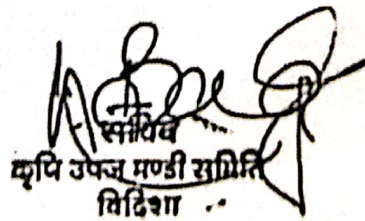 सचिव
कृषि उपज मण्डी समिति
विदिशा